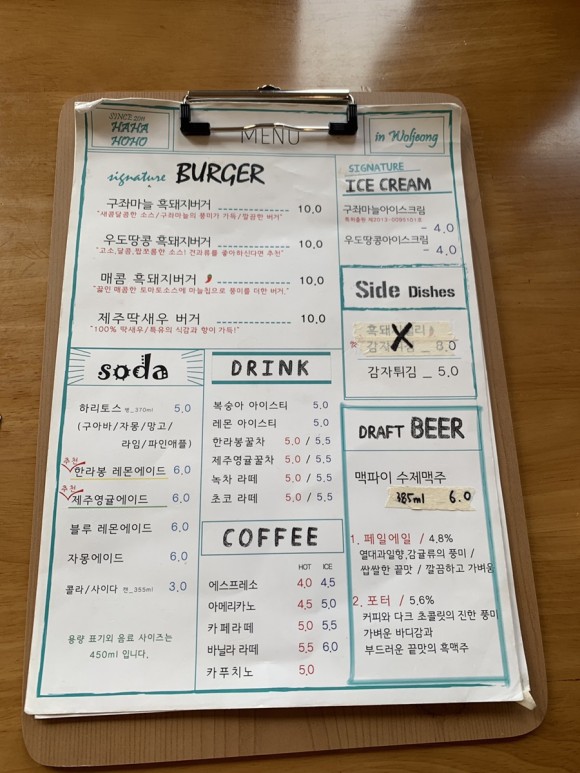 SINCE 2011
HAHA
HOHO
MENU
in Woljeong
signature BURGER
구좌마늘 흑돼지버거 10,0
"새콤달콤한 소스/구좌마늘의 풍미가 가득/깔끔한 버거"
우도땅콩 흑돼지버거 10,0
"고소,달콤,짭쪼롬한 소스! 견과류를 좋아하신다면 추천"
매콤 흑돼지버거 10,0
"끓인 매콤한 토마토소스에 마늘칩으로 풍미를 더한 버거"
제주딱새우 버거 10,0
"100% 딱새우/특유의 식감과 향이 가득!"
SIGNATURE
ICE CREAM
구좌마늘아이스크림
- 4,0
우도땅콩아이스크림
- 4,0
Side Dishes
X
감자튀김 _ 8,0
감자튀김 _ 5,0
soda
하리토스 병_370ml 5,0
(구아바/자몽/망고/
라임/파인애플)
추천
한라봉 레몬에이드 6,0
추천
제주영귤에이드 6,0
블루 레몬에이드 6,0
자몽에이드 6,0
콜라/사이다 캔_355ml 3,0
용량 표기외 음료 사이즈는
450ml 입니다.
DRINK
복숭아 아이스티 5,0
레몬 아이스티 5,0
한라봉꿀차 5,0 / 5,5
제주영귤꿀차 5,0 / 5,5
녹차 라떼 5,0 / 5,5
초코 라떼 5,0 / 5,5
COFFEE
HOT ICE
에스프레소 4,0 4,5
아메리카노 4,5 5,0
카페라떼 5,0 5,5
바닐라 라떼 5,5 6,0
카푸치노 5,0
DRAFT BEER
맥파이 수제맥주
385ml 6.0
1. 페일에일 / 4.8%
열대과일향,감귤류의 풍미 /
쌉쌀한 끝맛 / 깔끔하고 가벼움
2. 포터 / 5.6%
커피와 다크 초콜릿의 진한 풍미
가벼운 바디감과
부드러운 끝맛의 흑맥주